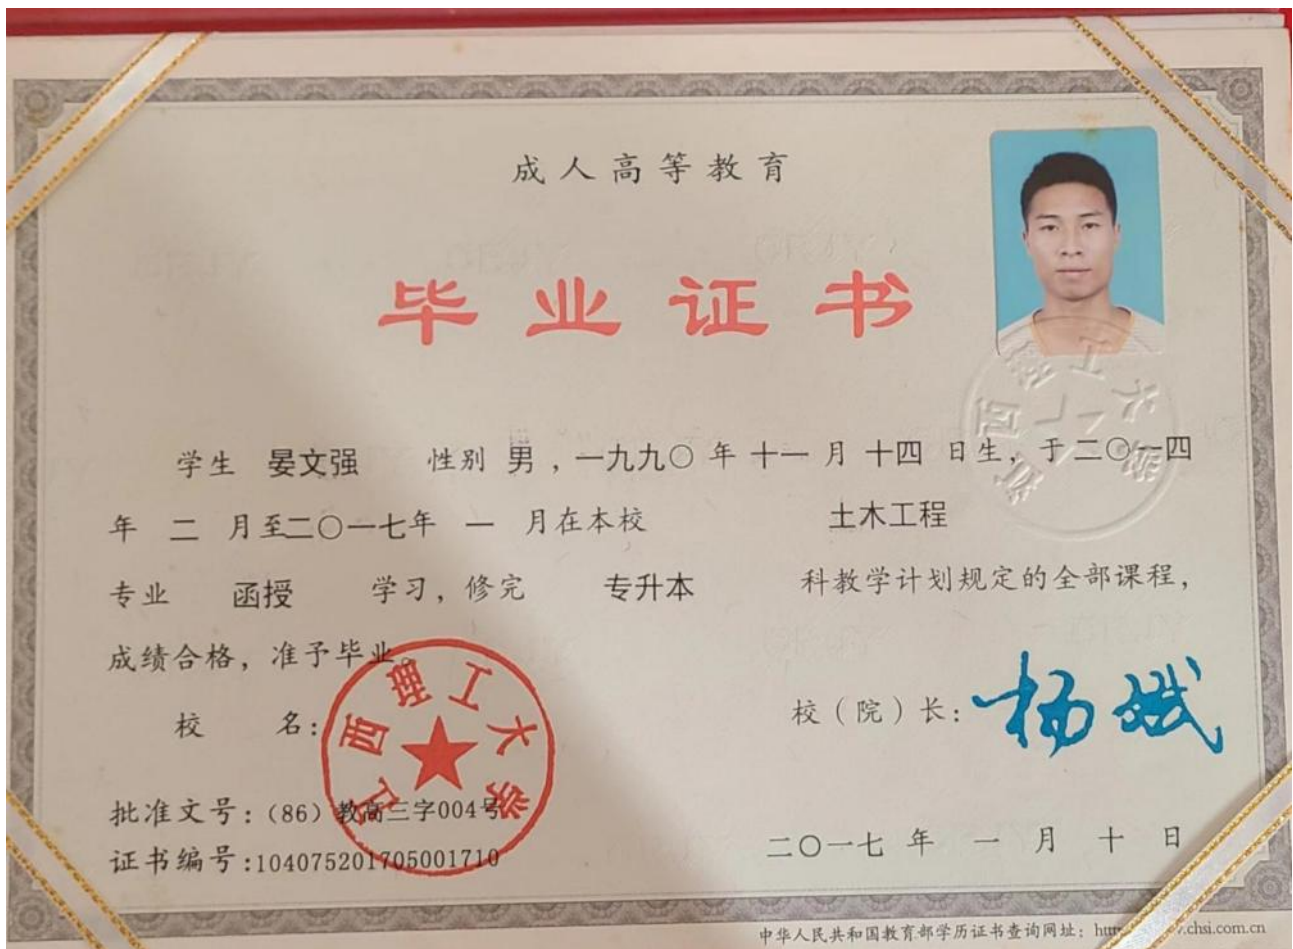 成人高等教育
毕业证书
学生 晏文强 性别 男,一九九〇年十一月十四日生,于二〇一四
年二月至二〇一七年一月在本校 土木工程
专业 函授 学习,修完 专升本 科教学计划规定的全部课程,
成绩合格,准予毕业。
校 名: 江西理工大学
校(院)长: 杨斌
批准文号:(86)教高三字004号
证书编号:104075201705001710
二〇一七年一月十日
中华人民共和国教育部学历证书查询网址:http chsi.com.cn
江西理工大学